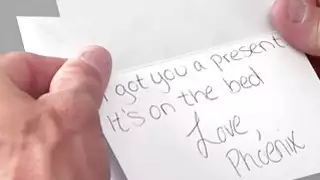 I got you a present
It's on the bed
Love,
Phoenix